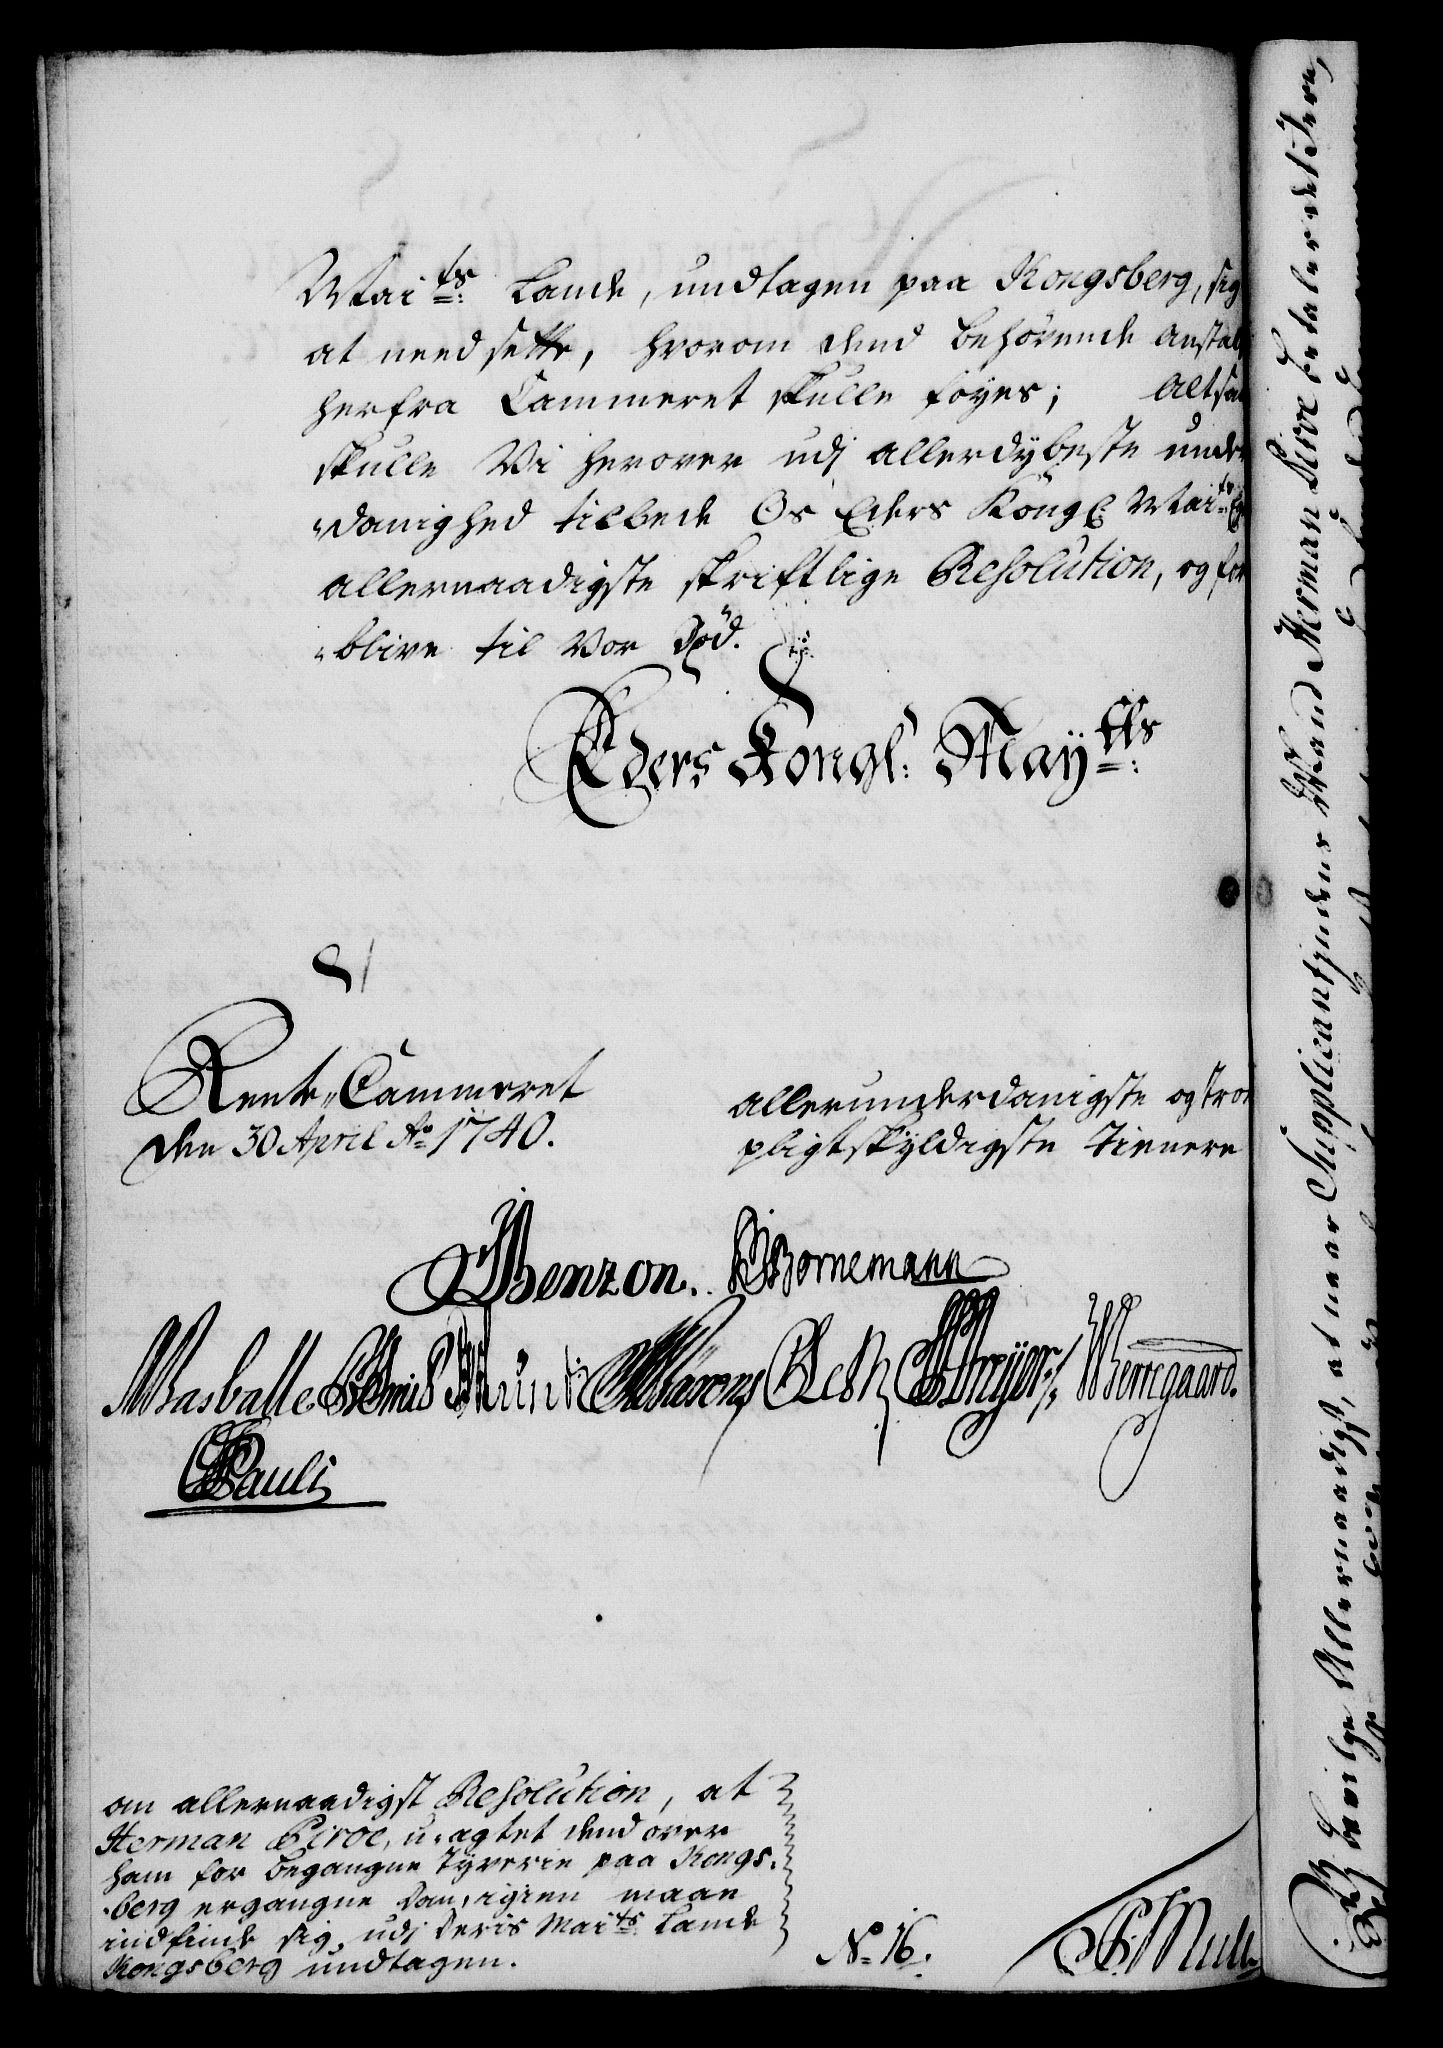 Maits: Lande, undtagen paa Kongsberg, sig
at needsette, hvorom dend behörende anstalt
herfra Cammeret skulle föyes; Altsaa
skulle Vi herover udj allerdybeste under
-danighed tilbede Os Eders Kongl Maits:
allernaadigste skriftlige Resolution, og for
-blive til Vor Död.
Eders Kongl: Maytts:
Rente-Cammeret
den 30 April Ao 1740.
allerunderdanigste og troe
pligtskyldigste tienere
Benzon. Bornemann
Basballe Munk Klesk Dreyer Wernegaard.
Pauli
om allernaadigst Resolution, at
Herman Piroe, u-agtet dend over
ham for begangne Tyverie paa Kongs-
-berg ergangne Dom, igien maae
indfinde sig udj Deris Maits: Lande
Kongsberg undtagen.
No 16.
Mull
Vi bevilge Allernaadigst, at naar Supplicantindens Mand Herman Piroe betaler det Jern,